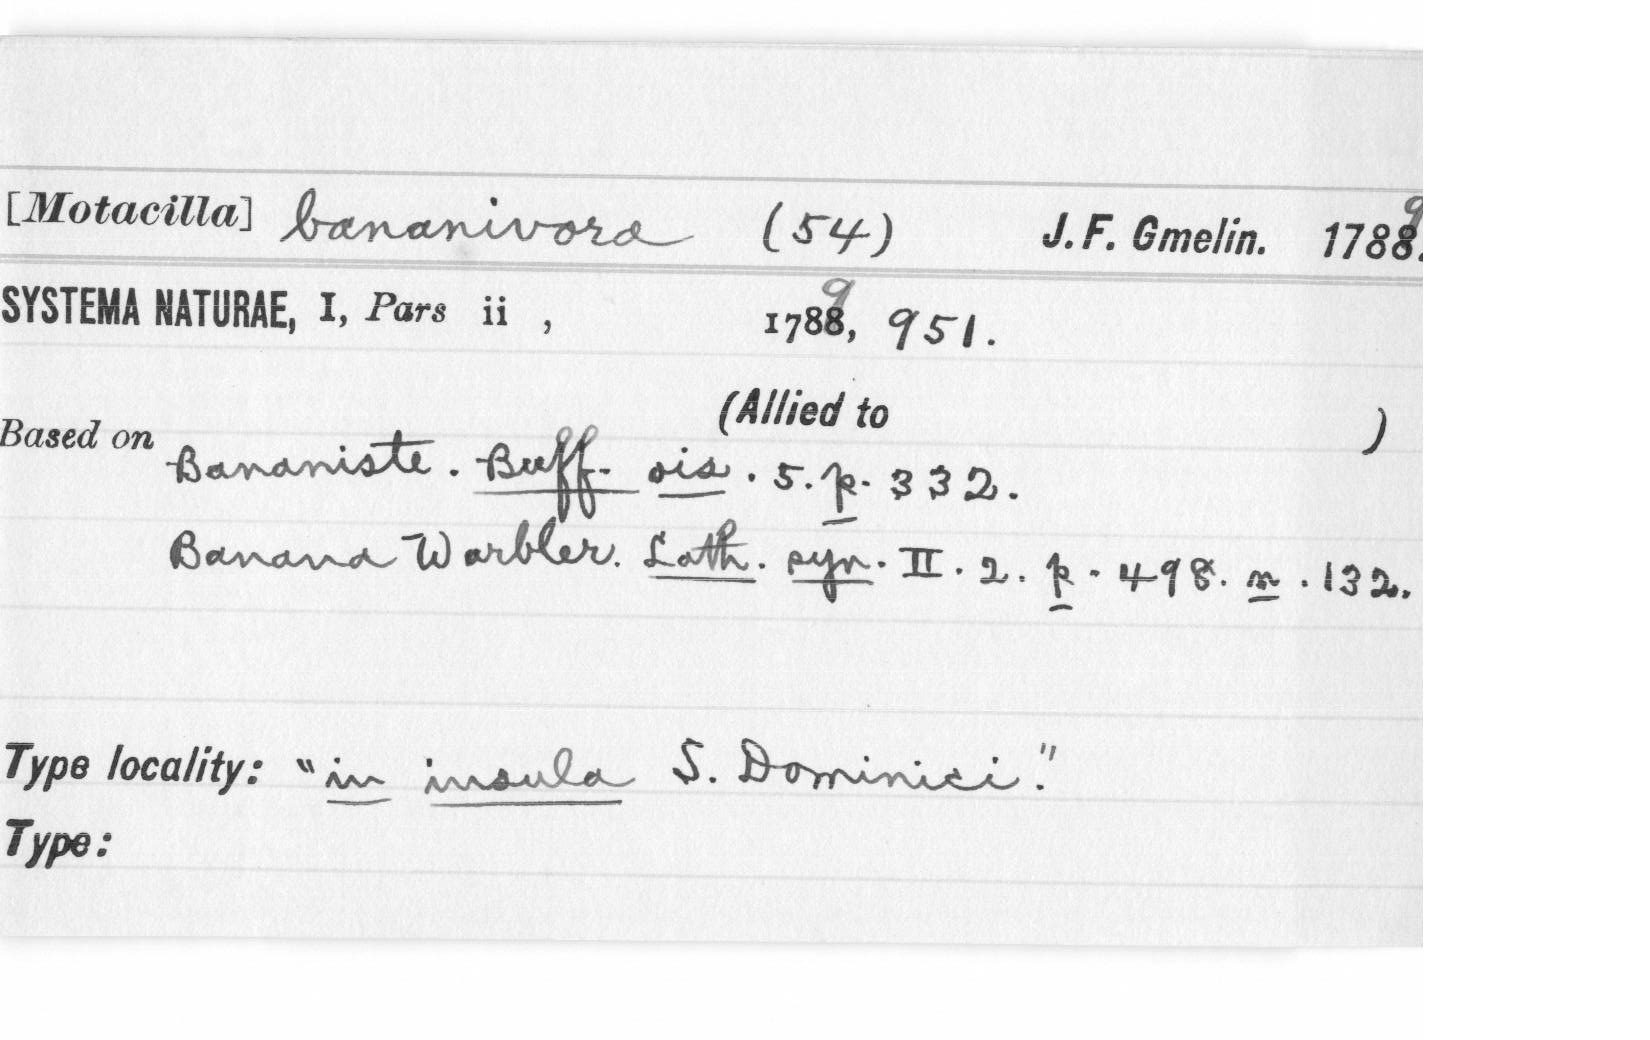 [Motacilla] bananivora (54) J. F. Gmelin. 1788. 9
SYSTEMA NATURAE, I, Pars ii , 1788, 9 951.
(Allied to )
Based on Bananiste. Buff. ois. 5. p. 332.
Banana Warbler. Lath. syn. II. 2. p. 498. n. 132.
Type locality: "in insula S. Dominici."
Type: